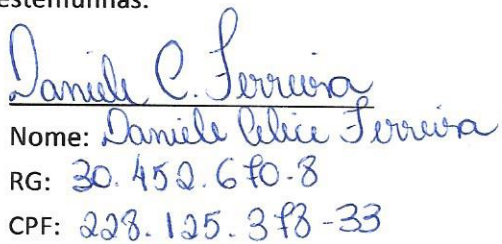 estemunhas:
Daniele C. Ferreira
Nome: Daniele Celice Ferreira
RG: 30.452.670-8
CPF: 228.125.378-33